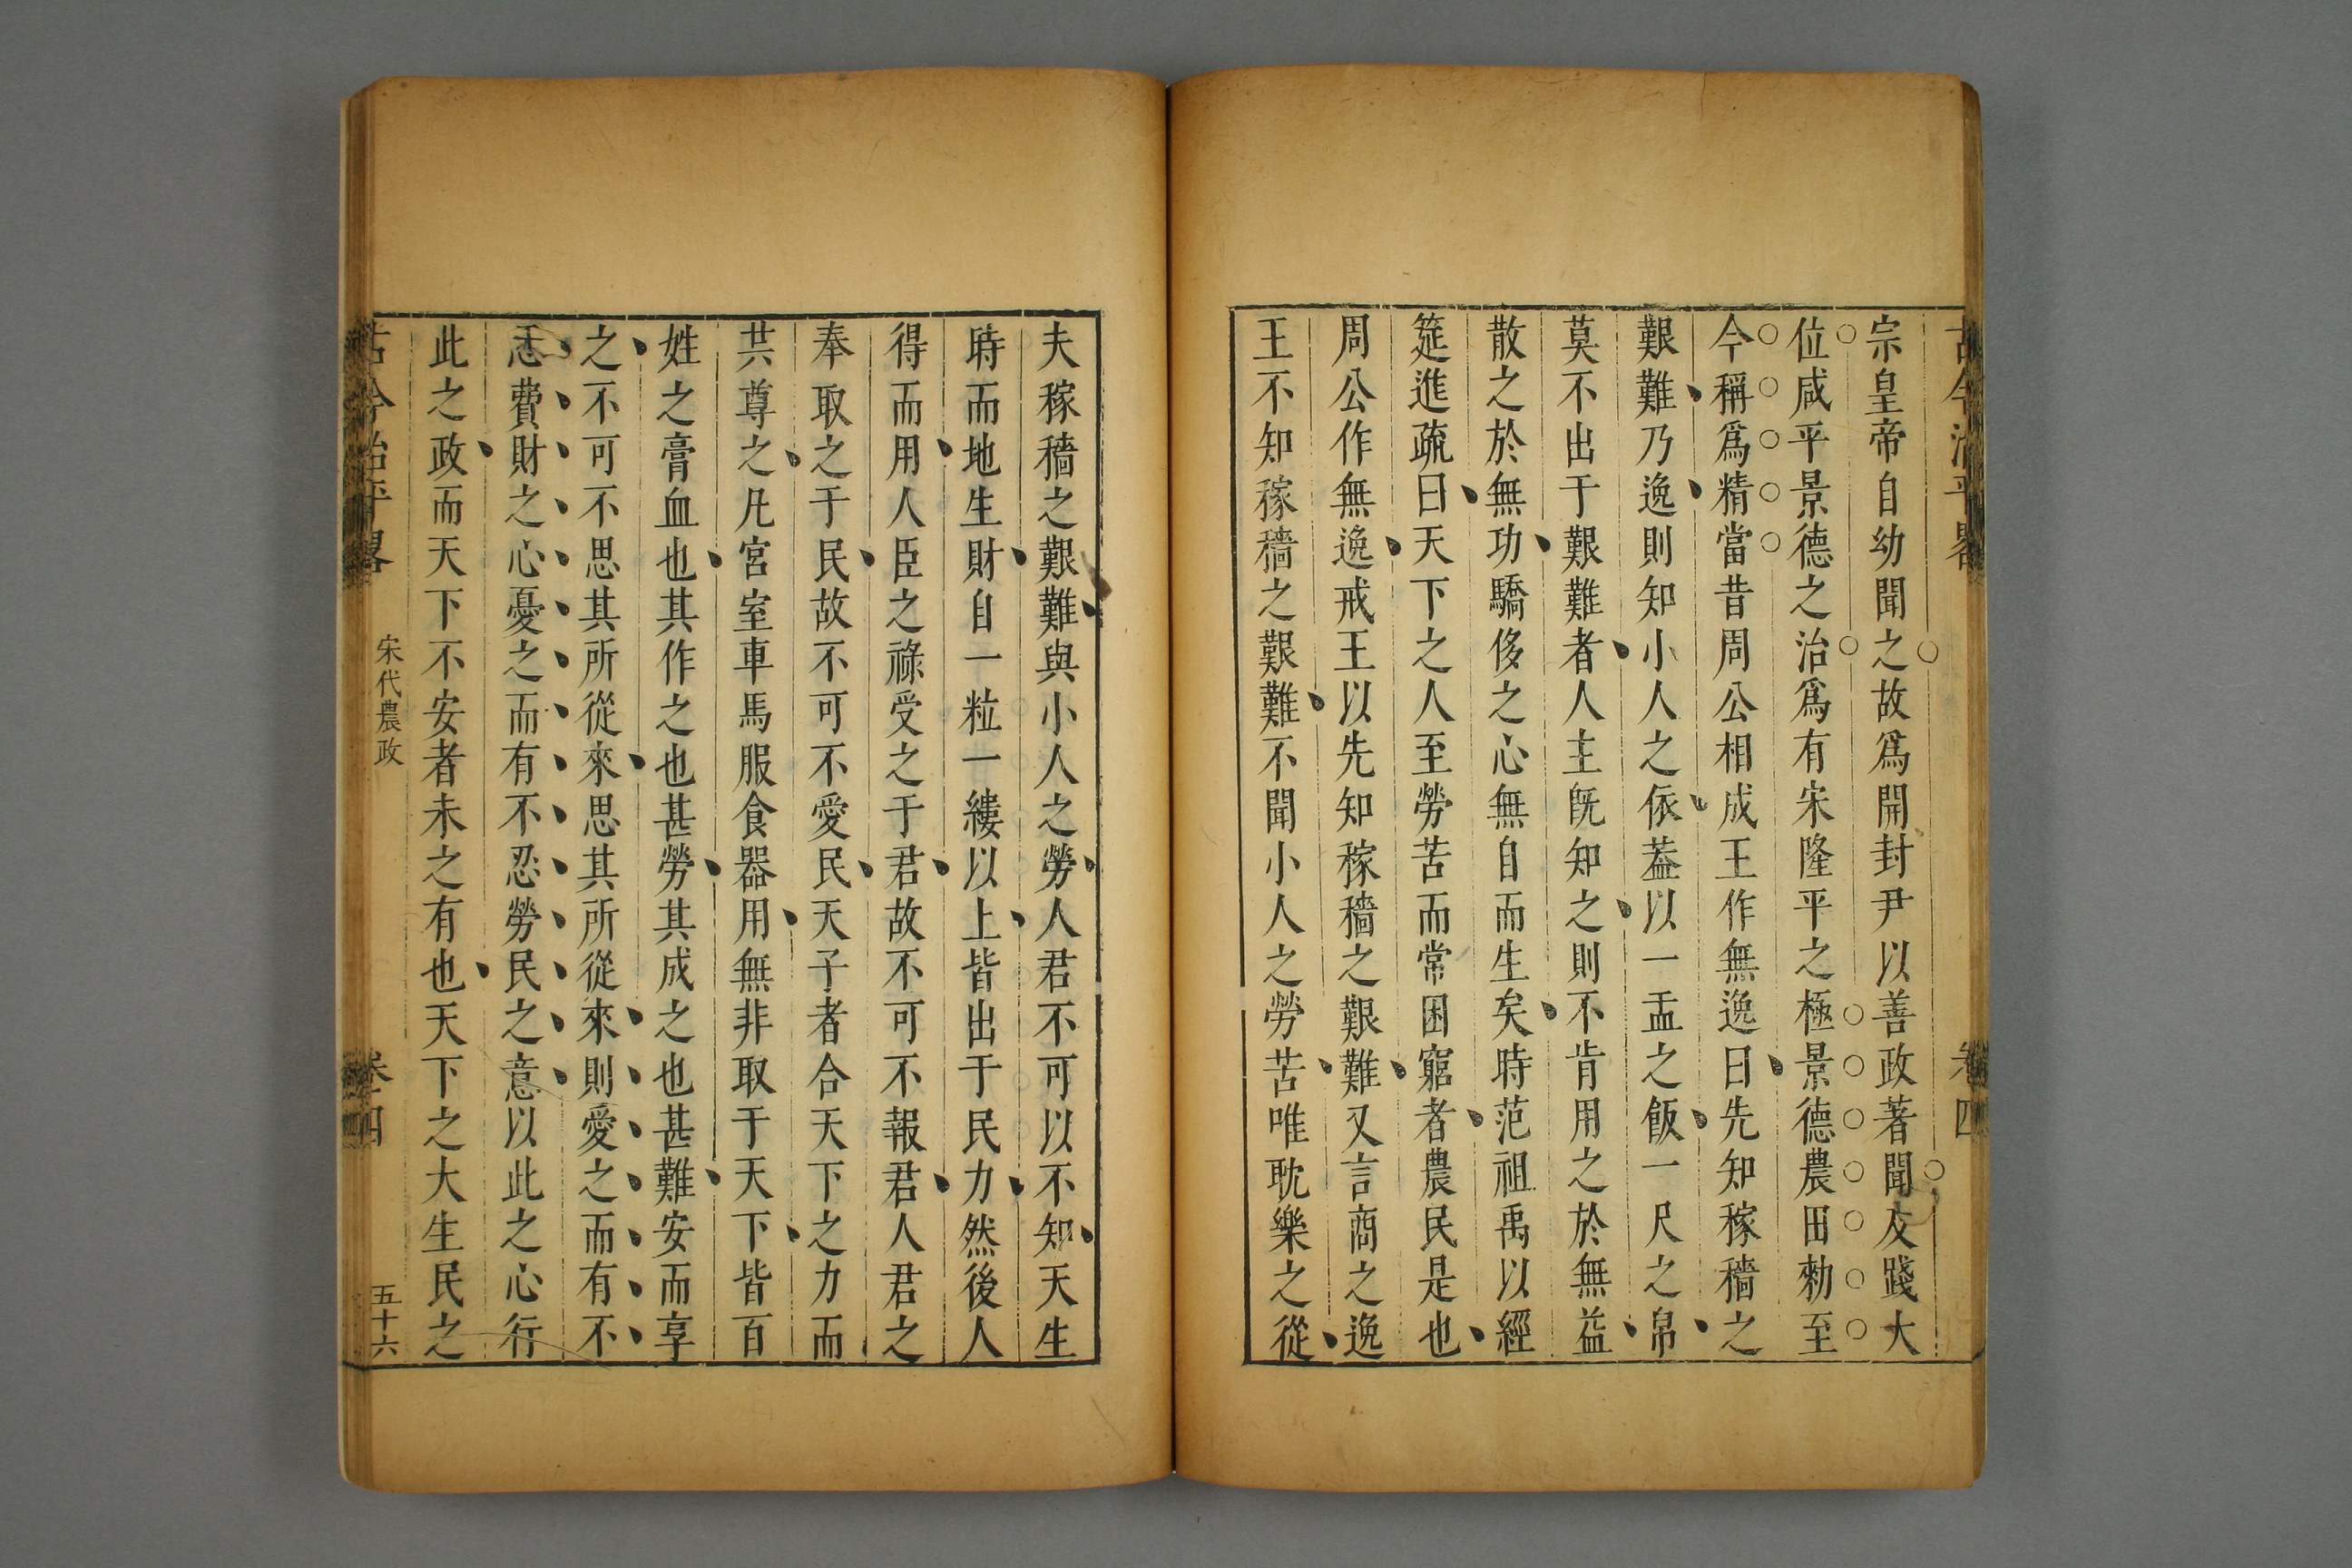 古今治平畧
卷四
宗皇帝自幼聞之故爲開封尹以善政著聞及踐大
位咸平景德之治爲有宋隆平之極景德農田勑至
今稱爲精當昔周公相成王作無逸曰先知稼穡之
艱難乃逸則知小人之依葢以一盂之飯一尺之帛
莫不出于艱難者人主旣知之則不肯用之於無益
散之於無功驕侈之心無自而生矣時范祖禹以經
筵進疏曰天下之人至勞苦而常困窮者農民是也
周公作無逸戒王以先知稼穡之艱難又言商之逸
王不知稼穡之艱難不聞小人之勞苦唯耽樂之從
夫稼穡之艱難與小人之勞人君不可以不知天生
時而地生財自一粒一縷以上皆出于民力然後人
得而用人臣之祿受之于君故不可不報君人君之
奉取之于民故不可不愛民天子者合天下之力而
共尊之凡宮室車馬服食器用無非取于天下皆百
姓之膏血也其作之也甚勞其成之也甚難安而享
之不可不思其所從來思其所從來則愛之而有不
忍費財之心憂之而有不忍勞民之意以此之心行
此之政而天下不安者未之有也天下之大生民之
古今治平畧
宋代農政
卷四
五十六